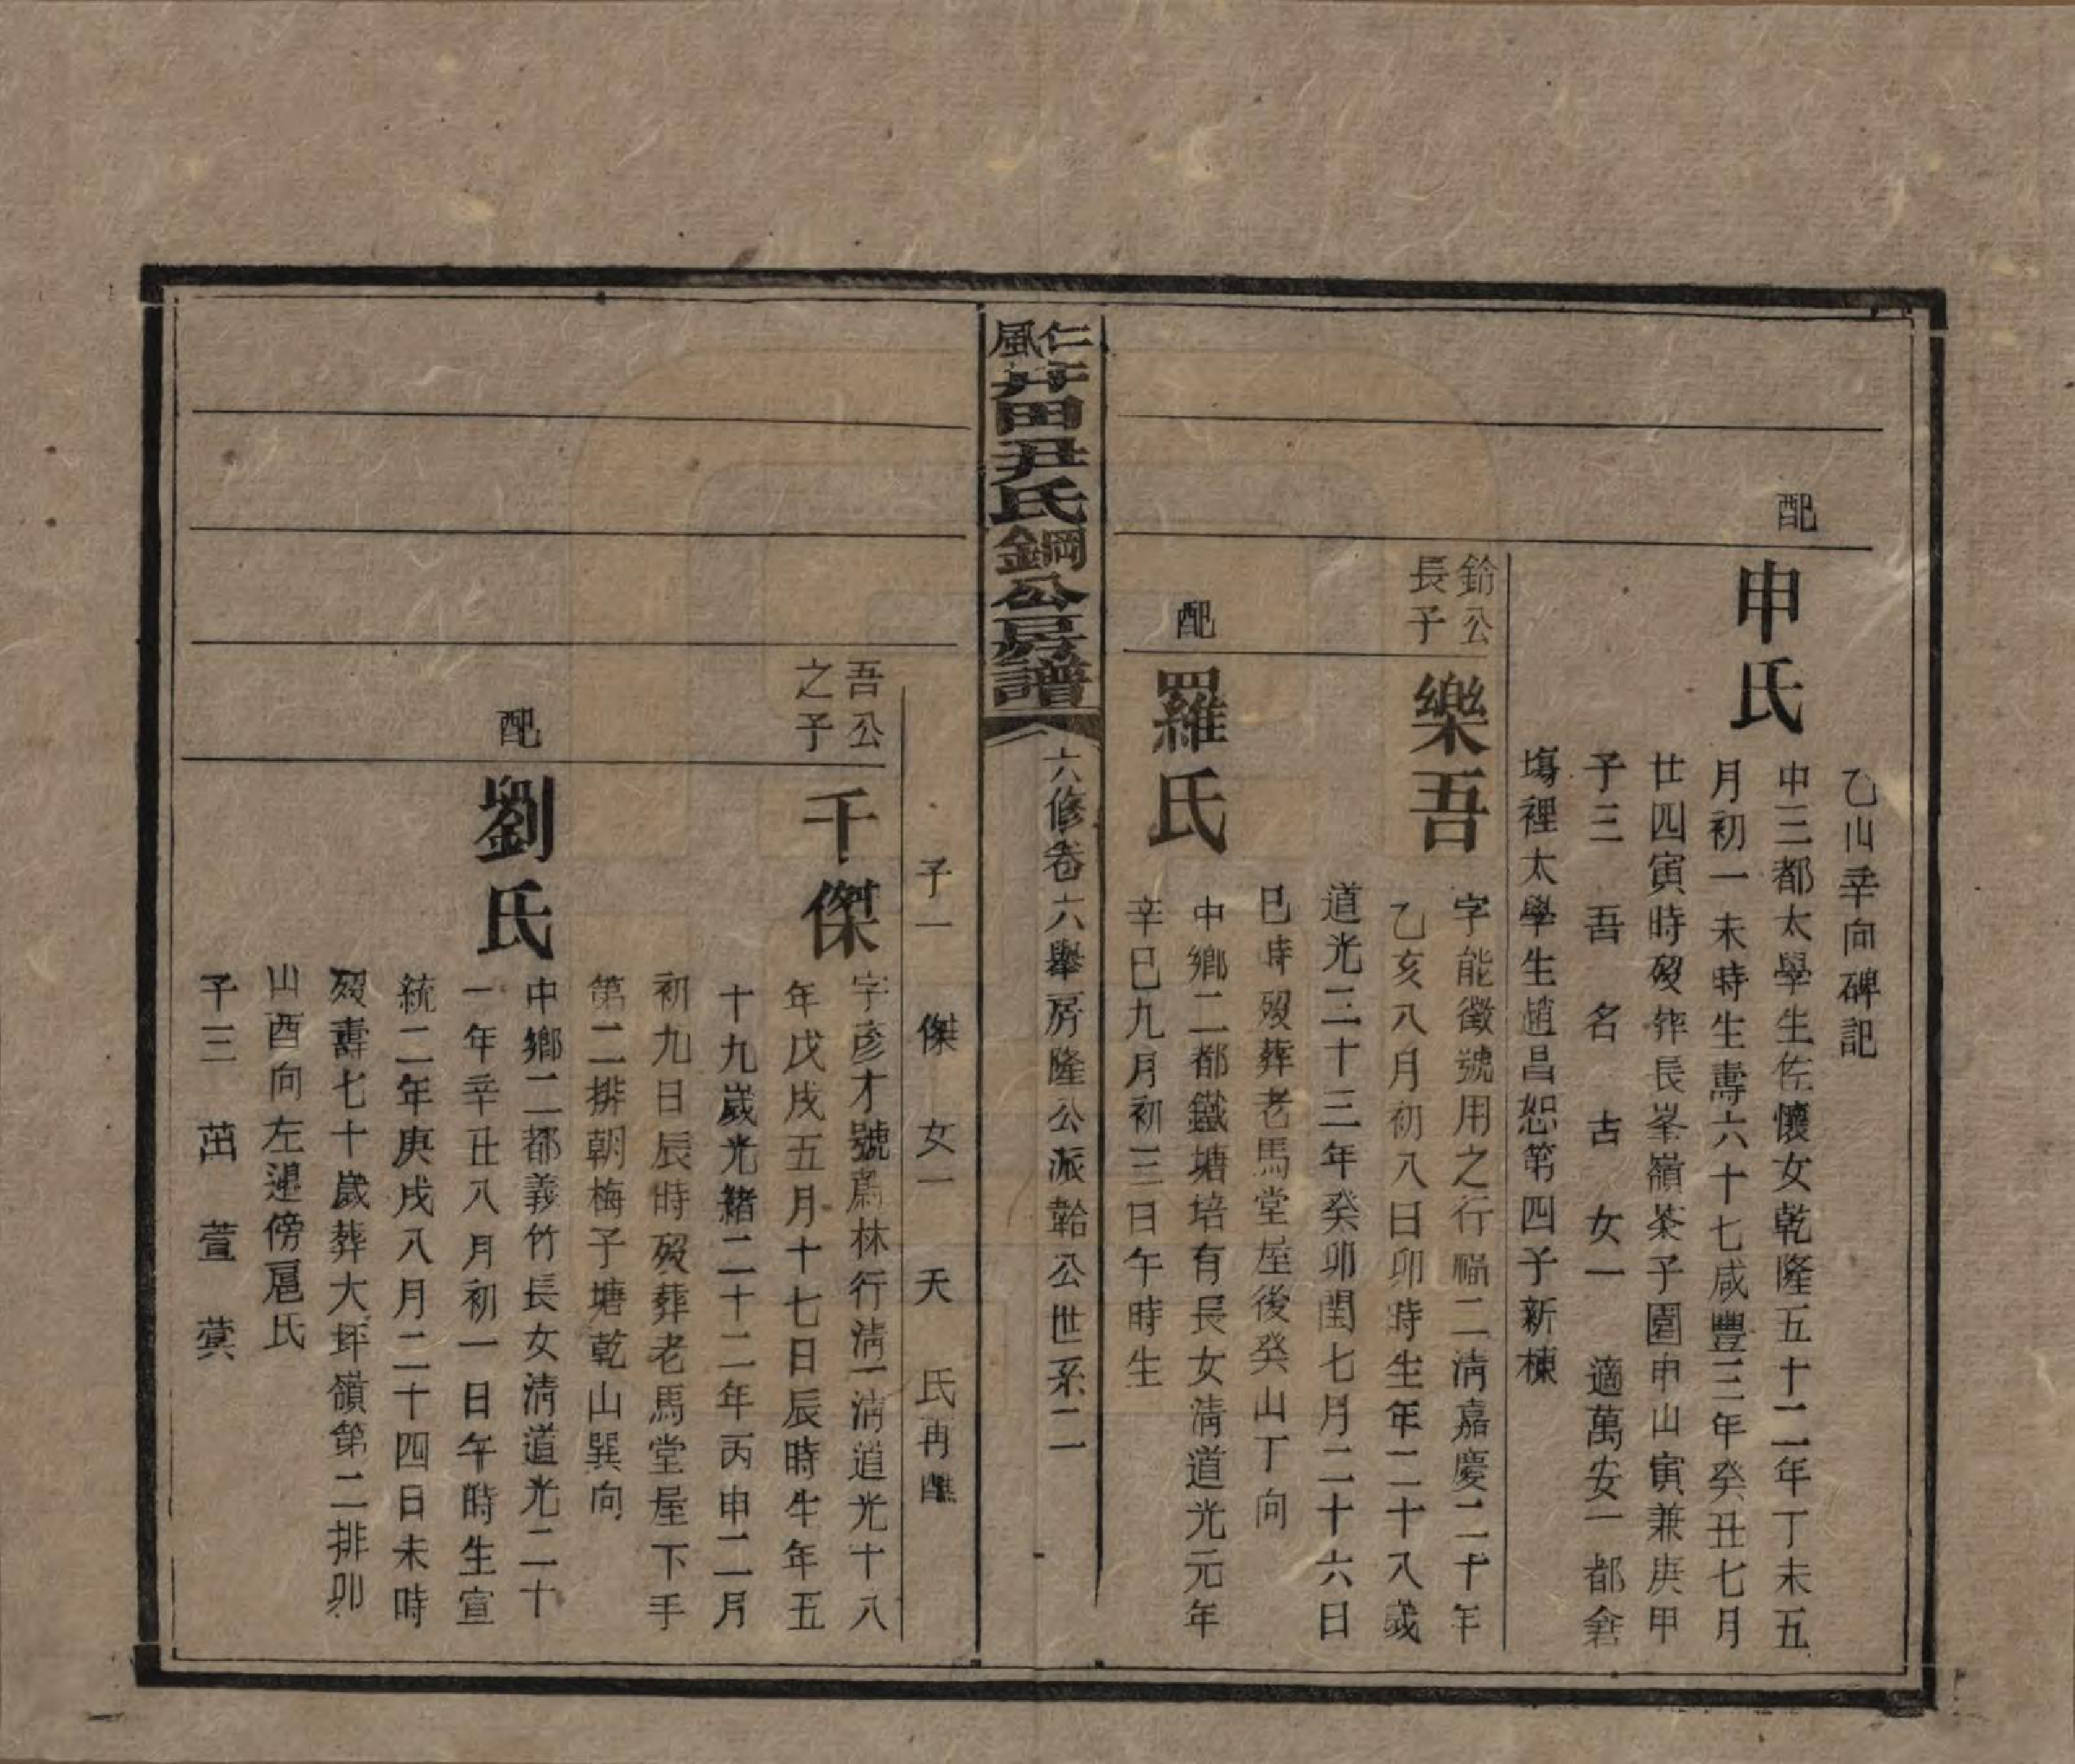 乙山辛向碑記
配
申氏
中三都太學生佐懷女乾隆五十二年丁未五
月初一未時生壽六十七咸豐三年癸丑七月
廿四寅時歿葬長峯嶺茶子園申山寅兼庚甲
子三 吾 名 古 女一 適萬安一都倉
塲裡太學生趙昌恕第四子新棟
鈖公
長子
樂吾
字能徵號用之行福二淸嘉慶二十年
乙亥八月初八日卯時生年二十八歲
道光二十三年癸卯閏七月二十六日
巳時歿葬老馬堂屋後癸山丁向
配
羅氏
中鄉二都鐵塘培有長女淸道光元年
辛巳九月初三日午時生
仁風井田尹氏鋼公房譜
六修卷六舉房隆公派鞈公世系二
子一 傑 女一 天 氏再醮
吾公
之子
千傑
字彥才號爲林行淸一淸道光十八
年戊戌五月十七日辰時生年五
十九歲光緒二十二年丙申二月
初九日辰時歿葬老馬堂屋下手
第二排朝梅子塘乾山巽向
配
劉氏
中鄉二都義竹長女淸道光二十
一年辛丑八月初一日午時生宣
統二年庚戌八月二十四日未時
歿壽七十歲葬大坪嶺第二排卯
山酉向左邊傍扈氏
子三 茁 萱 蓂